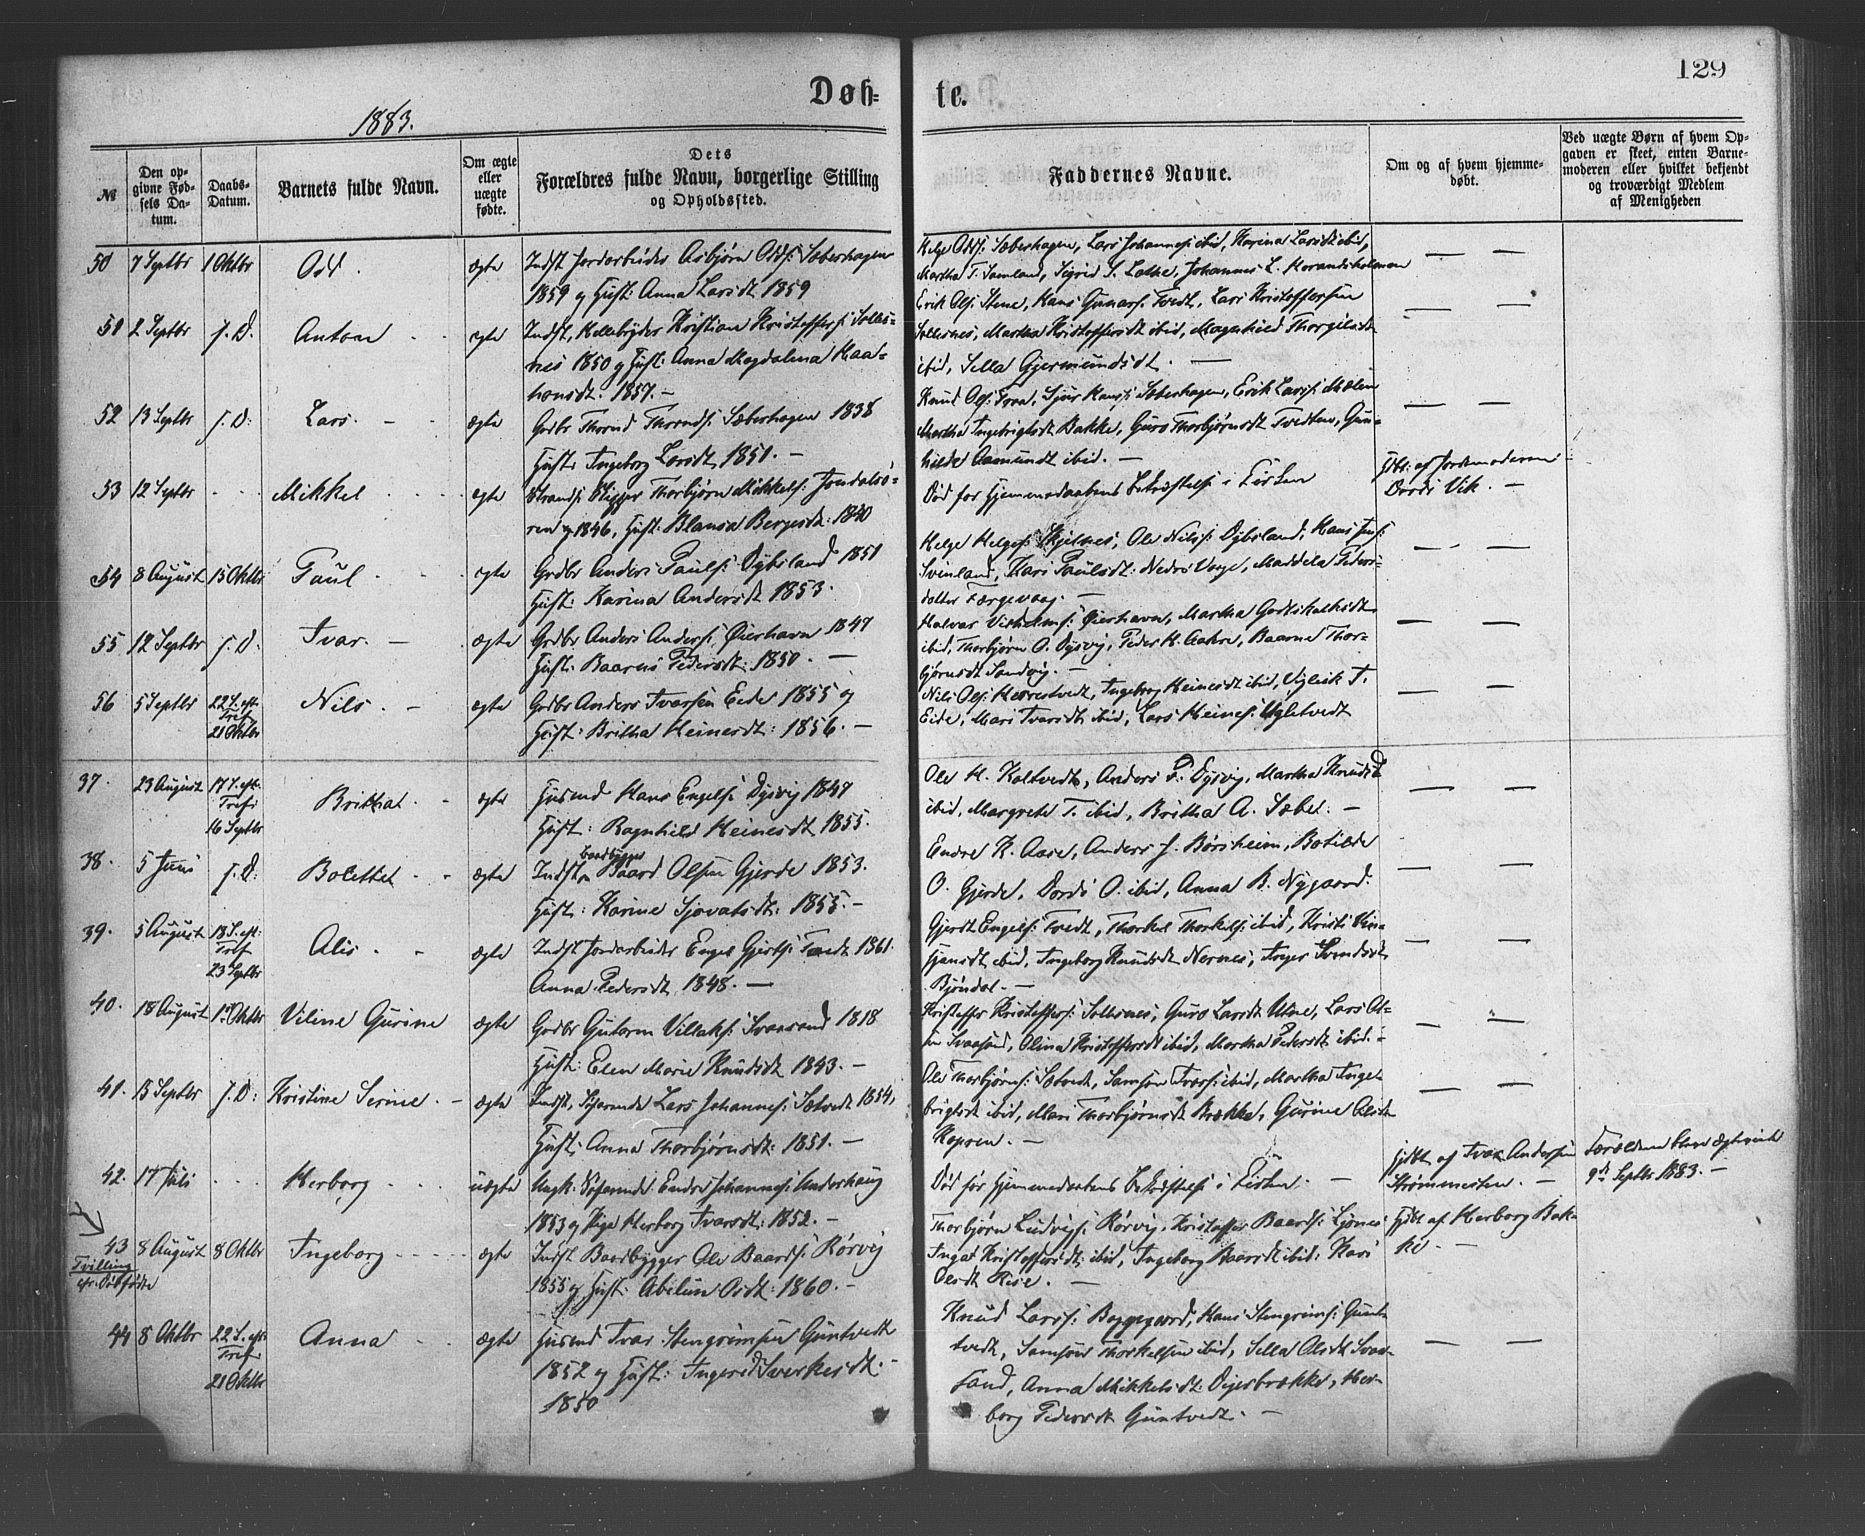 129
Døb=
te.
1883.
№
Den op-
givne Fød-
sels Da-
tum.
Daabs-
Datum.
Barnets fulde Navn.
Om ægte
eller
uægte
fødte.
Dets
Forældres fulde Navn, borgerlige Stilling
og Opholdssted.
Faddernes Navne.
Om og af hvem hjemme-
døbt.
Ved uægte Børn af hvem Op-
gaven er skeet, enten Barne-
moderen eller hvilket bekjendt
og troværdigt Medlem
af Menigheden
50 7 Septbr 1 Oktbr Odd. ægte Indst Jordarbeider Asbjørn Odds: Sæberhagen
1859 og Hust: Anna Larsdt 1859
Helge Odds: Sæberhagen, Lars Johanness: ibid, Karina Larsdt ibid,
Martha T. Samland, Sigrid S. Lothe, Johannes L.
Erik Ols: Stene, Hans Gunars: Tvedt, Lars Kristoffersen
51 2 Septbr J. D. Anton ægte Indst, Kristian Kristoffers: Solles-
nes 1850 og Hust: Anna Magdalena Haa-
konsdt: 1857. —
Sollesnes, Martha Kristoffersdt ibid, Magnhild Thorgilsdt
ibid, Sella Gjermundsdt. —
52 13 Septbr J. D: Lars. ægte Grdbr Thrond Thronds: Sæberhagen 1838
Hust: Ingeborg Larsdt, 1851. —
Knud Ols: Traa, Sjur Hans: Sæberhagen, Erik Larss: Mælen
Martha Ingebrigtsdt Bakke, Guro Thorbjørnsdt Tvedten, Gun-
hilde Aamundt ibid. —
53 12 Septbr Mikkel ægte Strands: Thorbjørn Mikkels: Jondalsø-
ren 1846, Hust: Blansa Bergesdt: 1840
Død før Hjemmedaabens Bekræftelse i Kirken
Hjdbt: af Jordemoderen
Dordi Vik. —
54 8 August 15 Oktbr Paul ægte Grdbr Anders Pauls: Dybsland 1851
Hust: Karina Andersdt 1853.
Helge Helges: Skjelnes, Ole Nils: Dybsland, Hans
Svinland, Kari Paulsdt: Nedre Vaage, Maddela Peders-
datter Færgevaag. —
55 12 Septbr J. D: Ivar. — ægte Grdbr Anders Anders: Øierhavn 1847
Hust: Baarni Pedersdt: 1850. —
Halvar Øierhavn, Martha Godtskalksdt
ibid, Thorbjørn O. Dysvig, Peder H. Aakre, Baarne Thor-
bjørnsdt Sandvig. —
56 5 Septbr 22 S. eft.
Tref.
21 Oktbr Nils. ægte Grdbr Anders Ivarsen Eide 1855 og
Hust: Britha Heinesdt: 1856. —
Nils Ols: Herrestvedt, Ingeborg Heinesdt ibid, I.
Eide, Mari Ivarsdt ibid, Lars Heines: Ugletvedt
37. 23 August 17 S. eft.
Tref:
16 Septbr Britha ægte Husmd Hans Engels: Dysvig 1847
Hust: Ragnhild Heinesdt 1855.
Ole H. Kaltvedt, Anders P. Dysvig, Martha Knudsdt
ibid, Margrete T. ibid, Britha A. Sæbel. —
38. 5 Juni J. D: Bolette ægte Indst, Baadbygger Baard Olsen Gjerde 1853.
Hust: Karine Sjovatsdt: 1855. —
Endre K. Aase, Anders J. Børsheim, Botilde
O. Gjerde, Dordi O. ibid, Anna B. Nygaard.
39. 5 August 18 S. eft:
Tref
23 Septbr Alis ægte Indst Jordarbeider Engel Gjerts: Tvedt 1861.
Anna Pedersdt 1848. —
Gjerdt Engels: Tvedt, Thorkel Thorkels: ibid, Kristi Vin-
jansdt ibid, Ingeborg Knudsdt Nernes, Inger Svendsdt
Bjöndal. —
40. 18 August 1 Oktbr Viline Gurine ægte Grdbr Gutorm Villaks: Svaasand 1818
Hust: Elen Marie Knudsdt 1843. —
Kristoffer Kristoffers: Sollesnes, Guro Larsdt Utne, Lars Ol-
sen Svaasand, Olina Kristoffersdt ibid, Martha Pedersdt ibid. -
41. 15 Septbr J. D: Kristine Serine — ægte Indst, Lars Johannes: Sætvedt 1854,
Hust: Anna Thorbjørnsdt: 1851. —
Ole Thorbjørns: Sætvedt, Samson Ivars: ibid, Martha Inge-
brigtsdt ibid, Mari Thorbjørnsdt Brække, Gurine Olsdt
Kopren. —
42. 17 Juli Herborg uægte Ungk. Søfarende Endre Johannes: Underhaug
1853 og Pige Herborg Ivarsdt: 1852. —
Død før Hjemmedaabens Bekræftelse i Kirken. —
Hjdbt af Ivar Andersen
Strømmesten. —
Forældrene bleve ægteviede
9de Septbr 1883. —
43 8 August 8 Oktbr Ingeborg ægte Indst Baadbygger Ole Baards: Rørvig
Tvilling
cfr. Dødfødte
1855 og Hust: Abelun Osdt: 1860. —
Thorbjørn Ludvigs: Rørvig, Kristoffer Baards: Ljones
Inga Kristoffersdt ibid, Ingeborg Baardsdt ibid. Kari
Olsdt Rise. —
Hjdbt af Herborg Bak-
ke. —
44 8 Oktbr 22 S. eft:
Tref.
21 Oktbr Anna ægte Husmd Ivar Stengrimsen Guntvedt
1852 og Hust: Ingerid Sverkesdt. -
1850
Knud Larss: Byggegaard, Hans Stengrims: Gunt-
vedt, Samson Thorkelsen ibid, Sella Olsdt Svaa-
sand, Anna Mikkelsdt: Digerbrække, Her-
borg Pedersdt Guntvedt. —